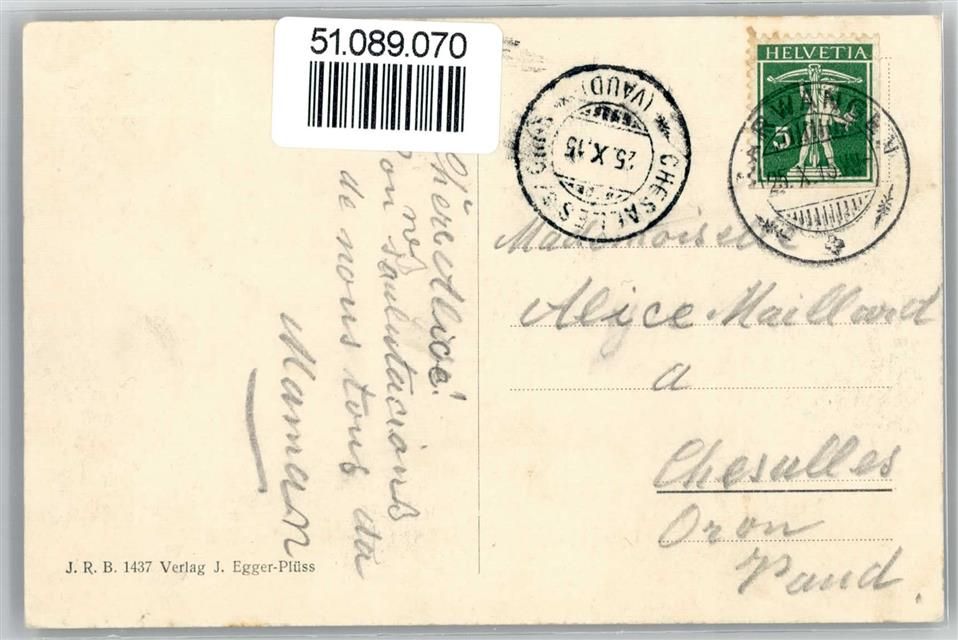 51.089.070
HELVETIA
5
AARWANGEN
25. X. 15
CHESALLES S/ORON
(VAUD)
25.X.15
Chère Alice!
Bon nos salutacions
de nous tous da
Maman
Mademoiselle
Alice Maillard
a
Chesalles
Oron
Vaud.
J. R. B. 1437 Verlag J. Egger-Plüss